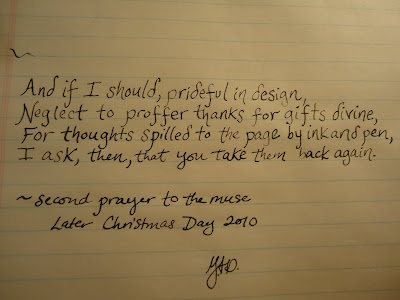 ~
And if I should, prideful in design,
Neglect to proffer thanks for gifts divine,
For thoughts spilled to the page by ink and pen,
I ask, then, that you take them back again.
~ second prayer to the muse
Later Christmas Day 2010